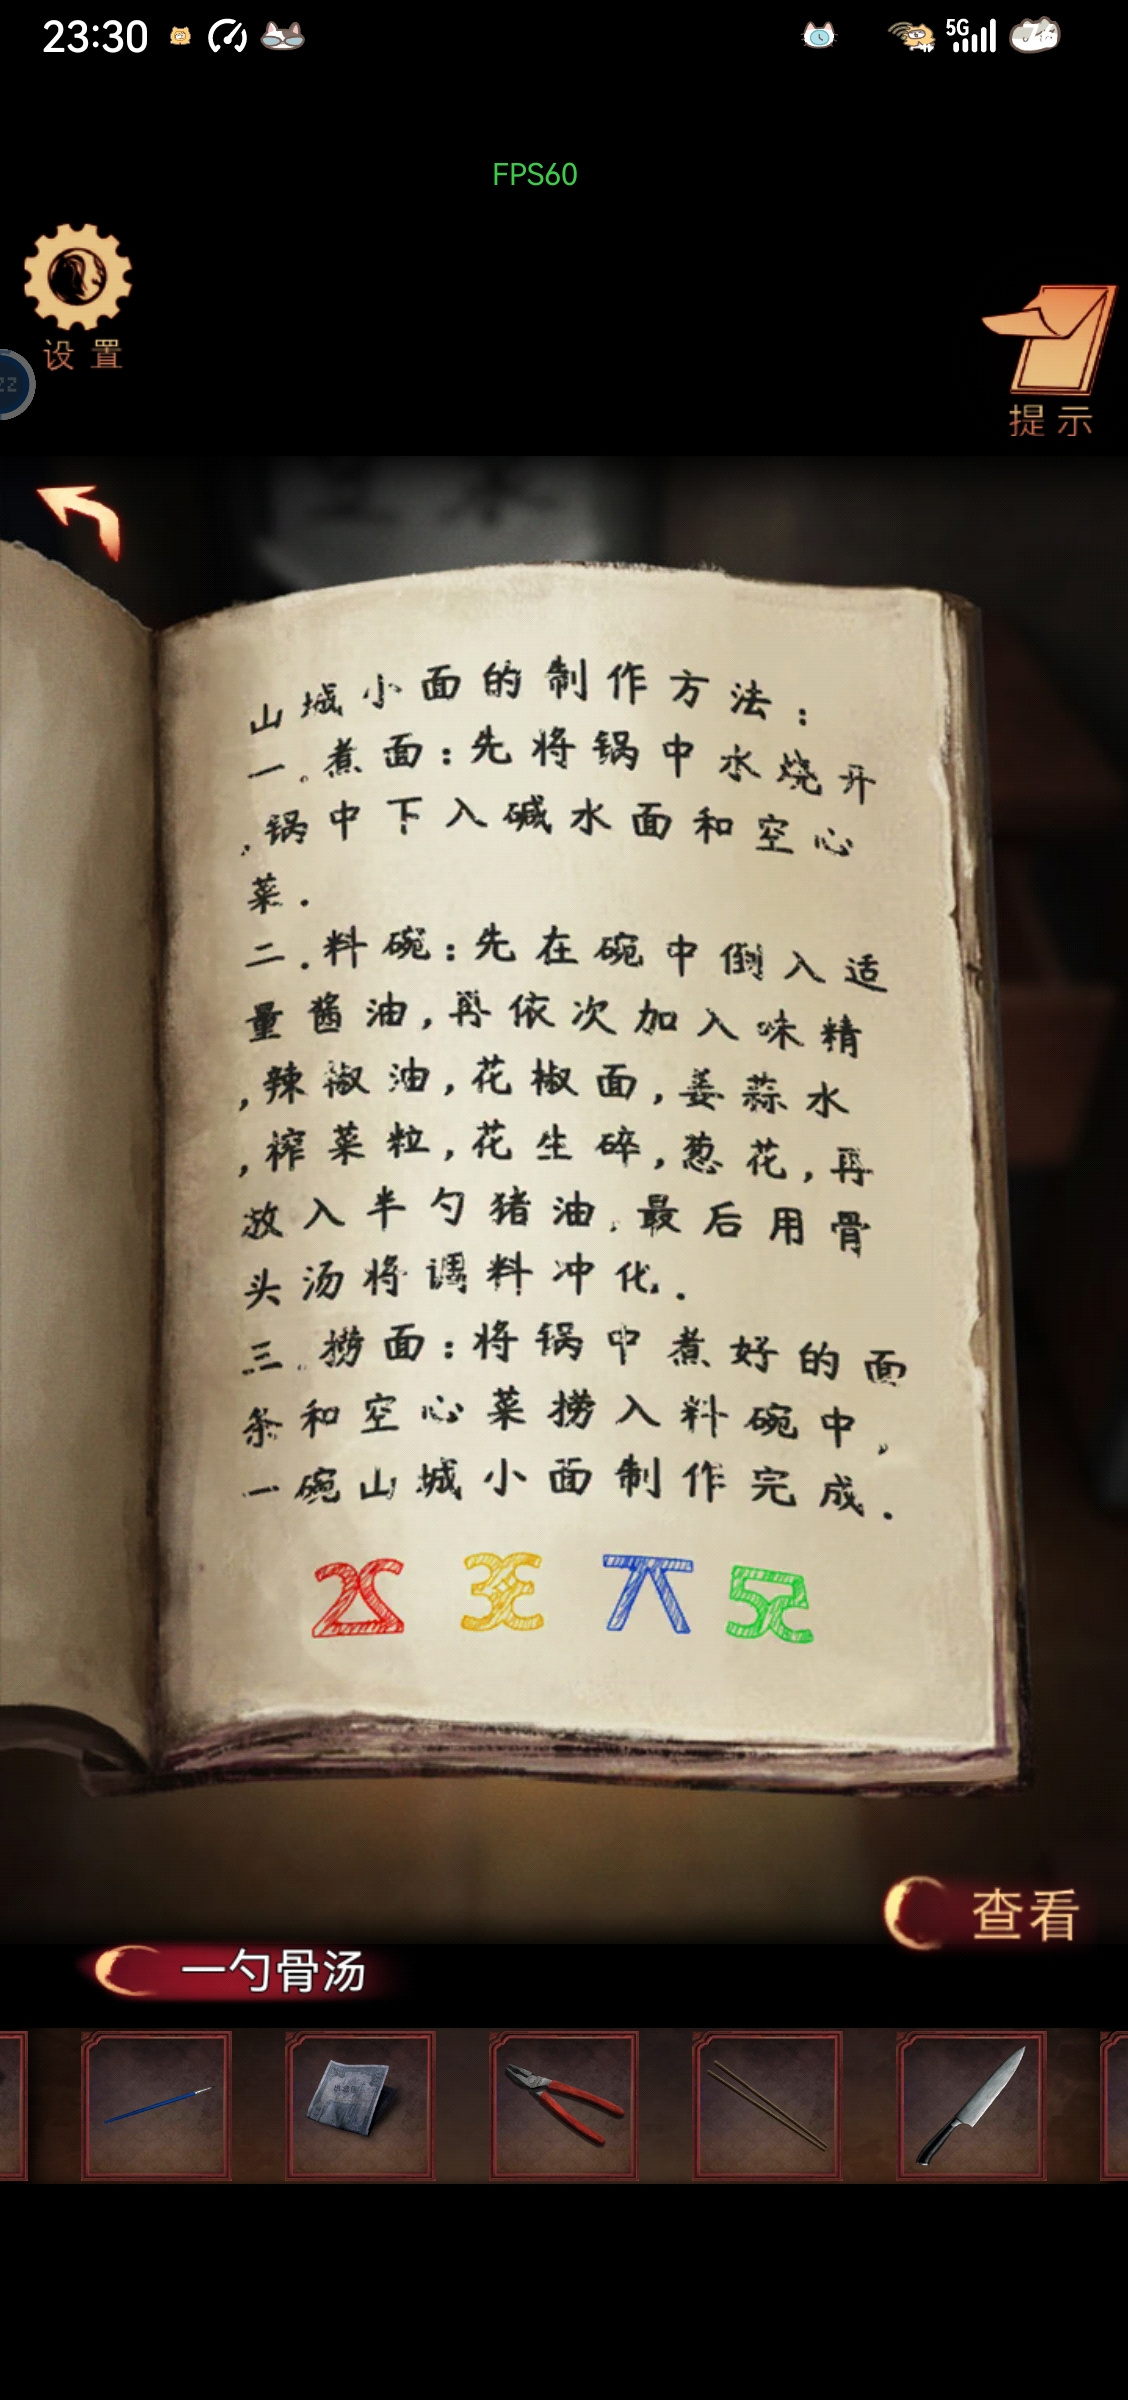 23:30
5G
FPS60
设置
提示
山城小面的制作方法：
一.煮面：先将锅中水烧开
,锅中下入碱水面和空心
菜.
二.料碗：先在碗中倒入适
量酱油,再依次加入味精
,辣椒油,花椒面,姜蒜水
,榨菜粒,花生碎,葱花,再
放入半勺猪油.最后用骨
头汤将调料冲化.
三.捞面：将锅中煮好的面
条和空心菜捞入料碗中,
一碗山城小面制作完成.
查看
一勺骨汤